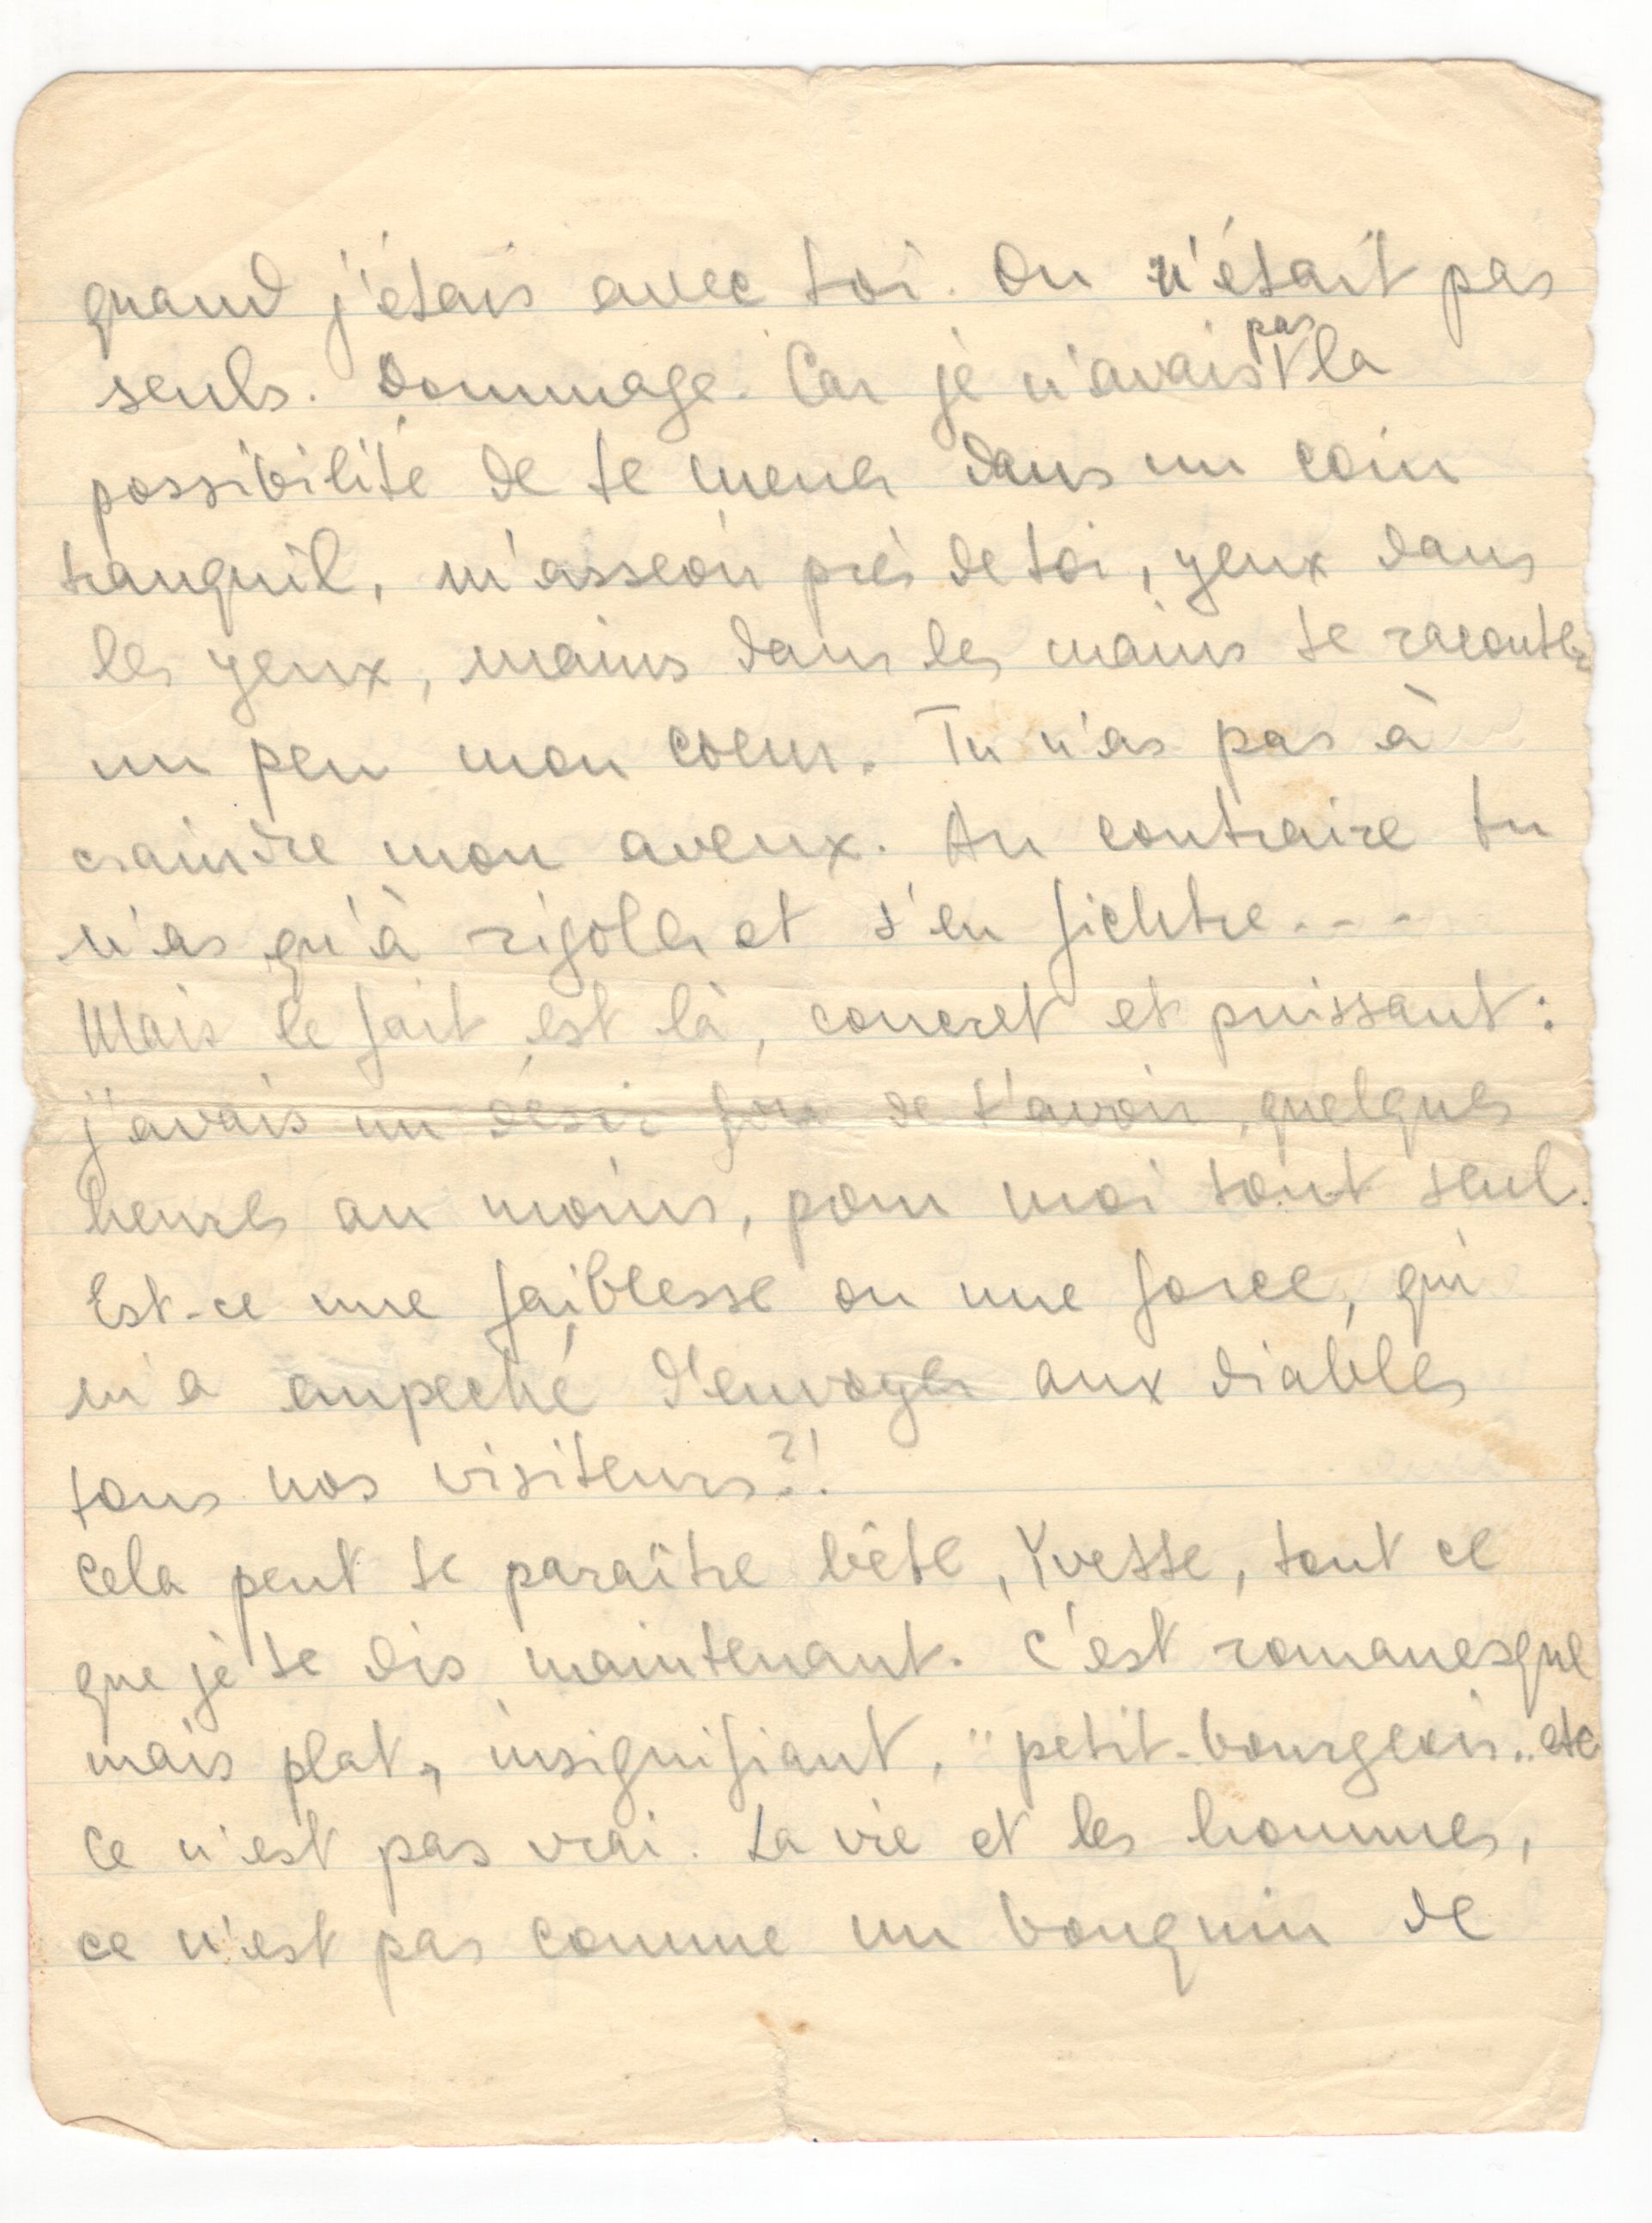 quand j'étais avec toi. On n'était pas
seuls. Dommage. Car je n'avais pas la
possibilité de te mener dans un coin
tranquil, m'asseoir près de toi, yeux dans
les yeux, mains dans les mains te raconter
un peu mon coeur. Tu n'as pas à
craindre mon aveux. Au contraire tu
n'as qu'à rigoler et s'en fichtre...
Mais le fait est là, concret et puissant :
j'avais un désir fou de t'avoir, quelques
heures au moins, pour moi tout seul.
Est-ce une faiblesse ou une force, qui
m'a empeché d'envoyer aux diables
tous nos visiteurs?!
Cela peut te paraître bête, Yvette, tout ce
que je te dis maintenant. C'est romanesque
mais plat, insignifiant, "petit-bourgeois" etc
Ce n'est pas vrai. La vie et les hommes,
ce n'est pas comme un bouquin de